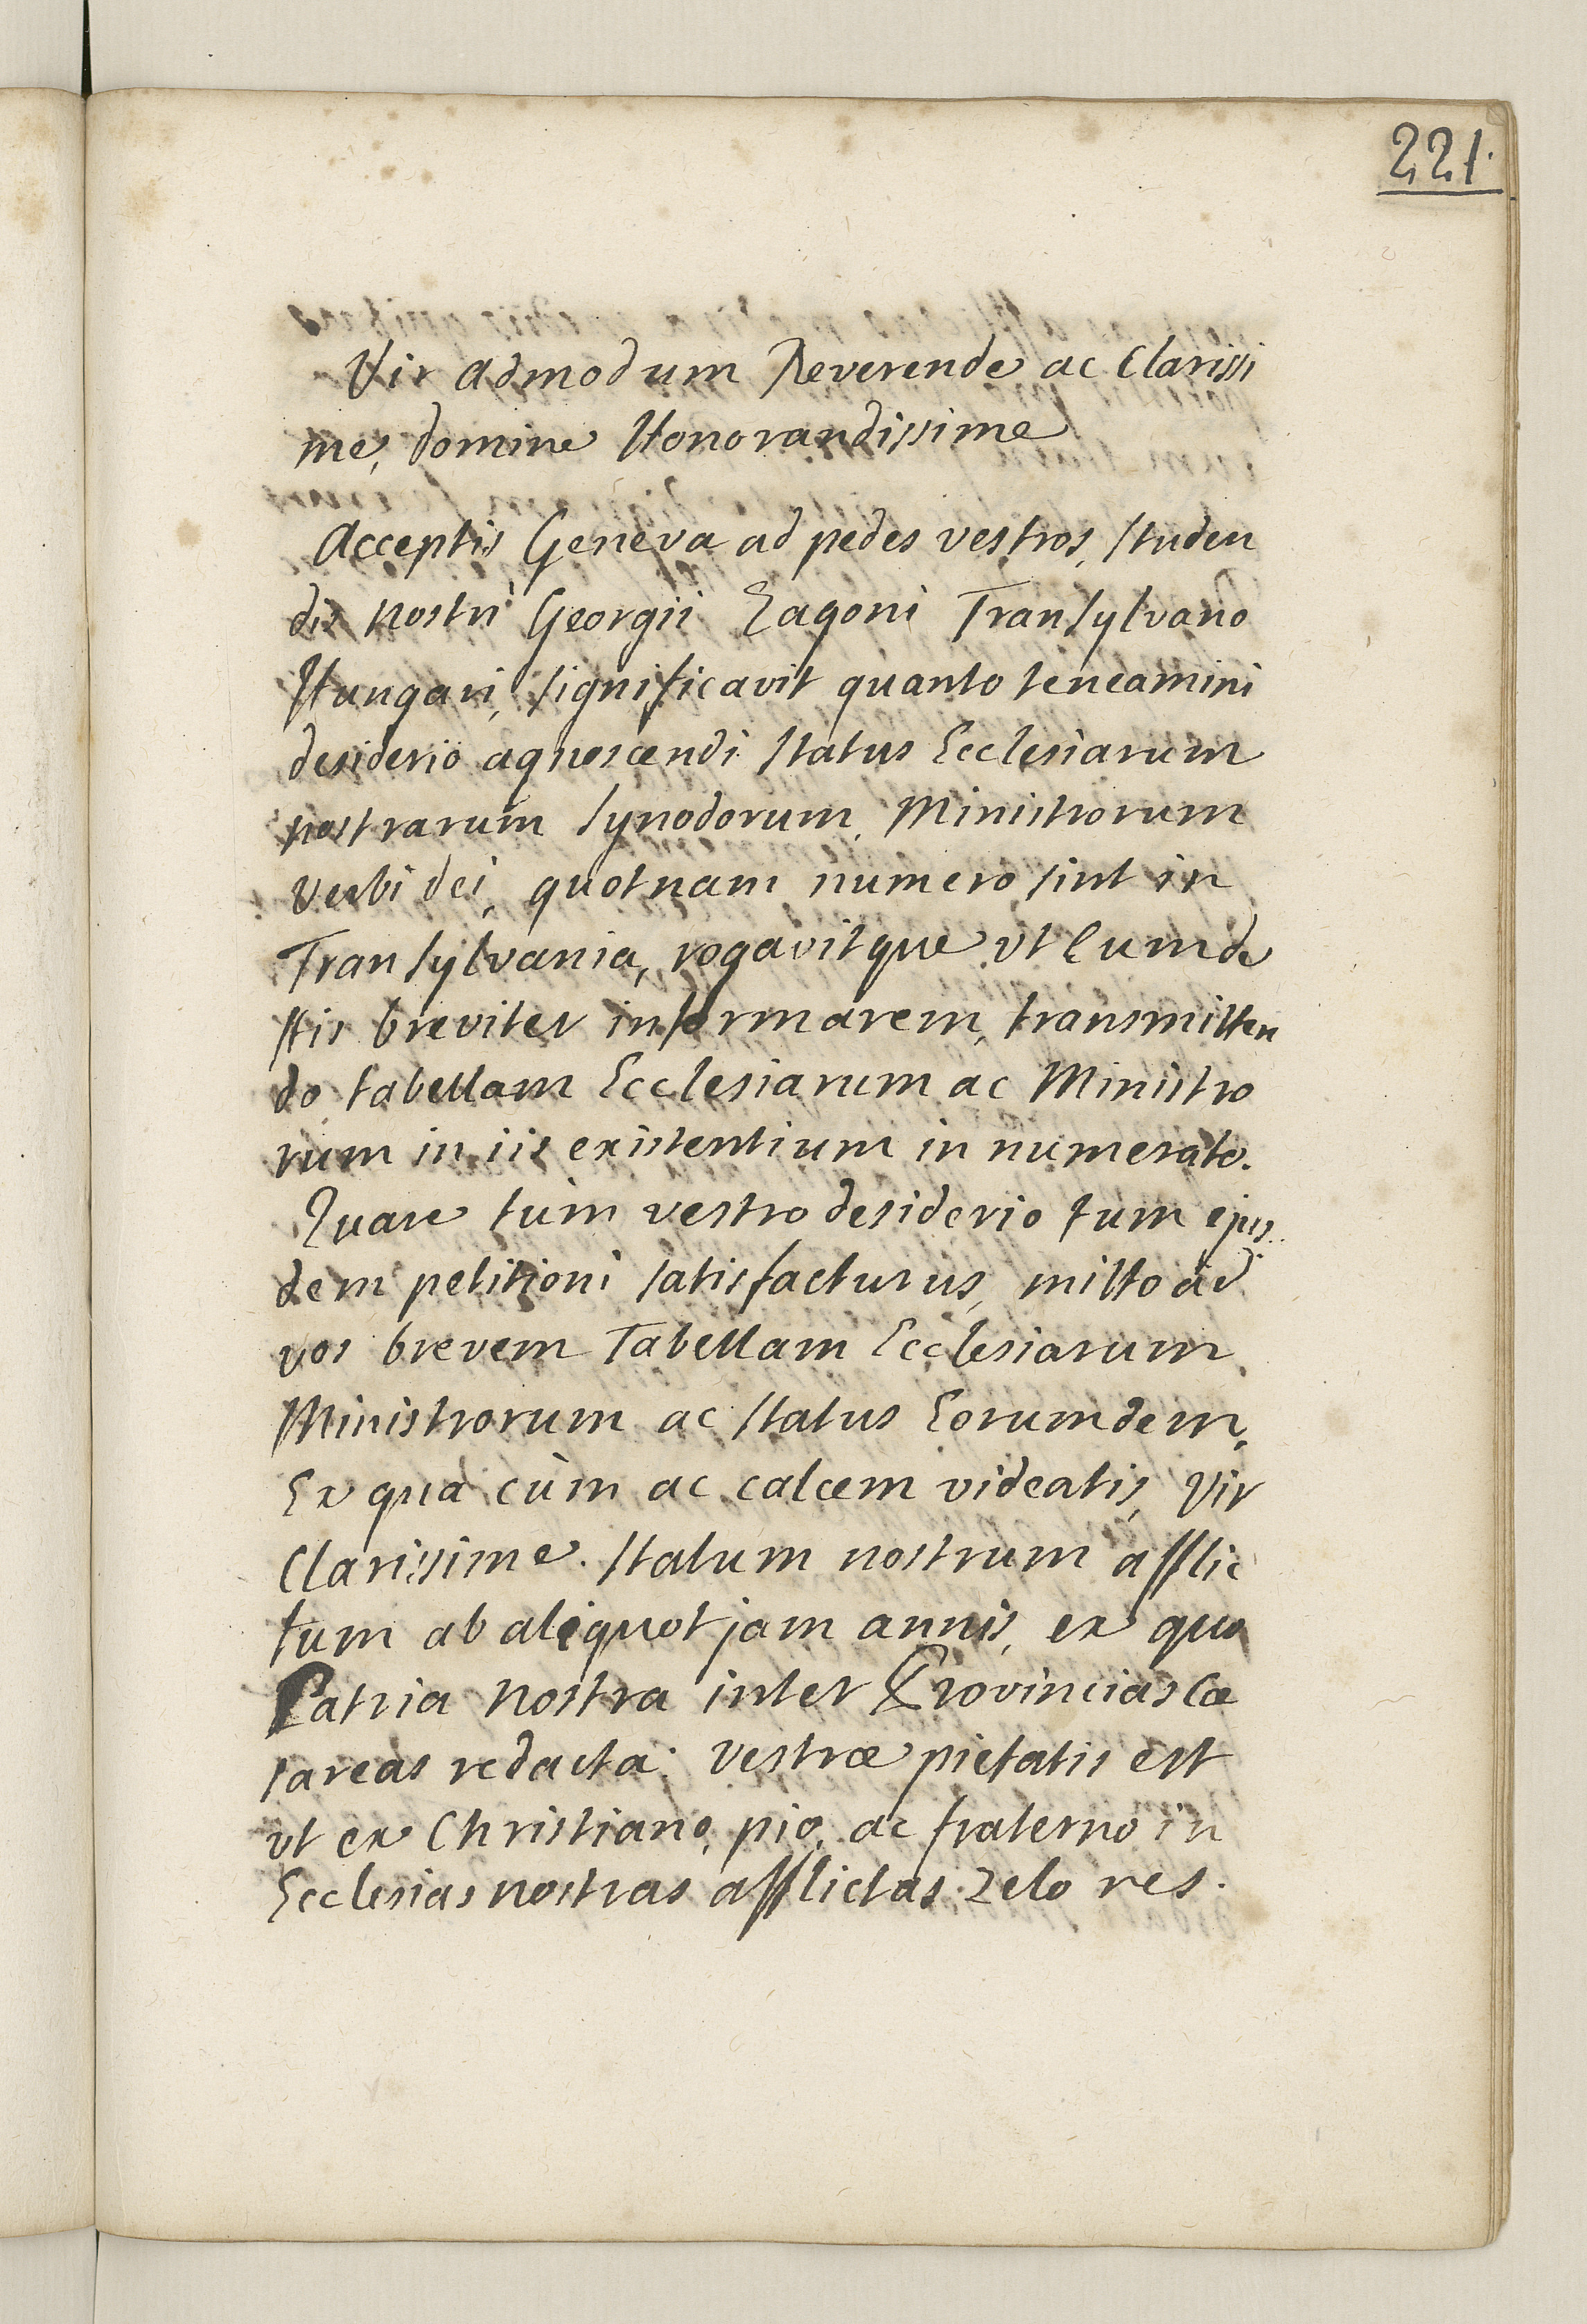 221.
Vir admodum Reverende ac Clarissi
me, domine Honorandissime
Acceptis Geneva ad pedes vestros, studen
dis nostri Georgii Zagoni Transylvano
Hungari, significavit quanto teneamini
desiderio agnoscendi status Ecclesiarum
nostrarum synodorum, Ministrorum
verbi dei, quotnam numero sint in
Transylvania, rogavitque vt Eum de
his breviter informarem, transmitten
do tabellam Ecclesiarum ac Ministro
rum in iis existentium in numerato.
Quare tùm vestro desiderio tum ejus
dem petitioni satisfacturus, mitto ad
vos brevem Tabellam Ecclesiarum,
Ministrorum ac status Eorumdem,
Ex qua cùm ac calcem videatis, Vir
Clarissime. statum nostrum afflic
tum ab aliquot jam annis, ex quo
Patria nostra inter Provincias Cæ
sareas redacta: vestræ pietatis est
vt ex Christiano, pio, ac fraterno in
Ecclesias nostras afflictas zelo res.